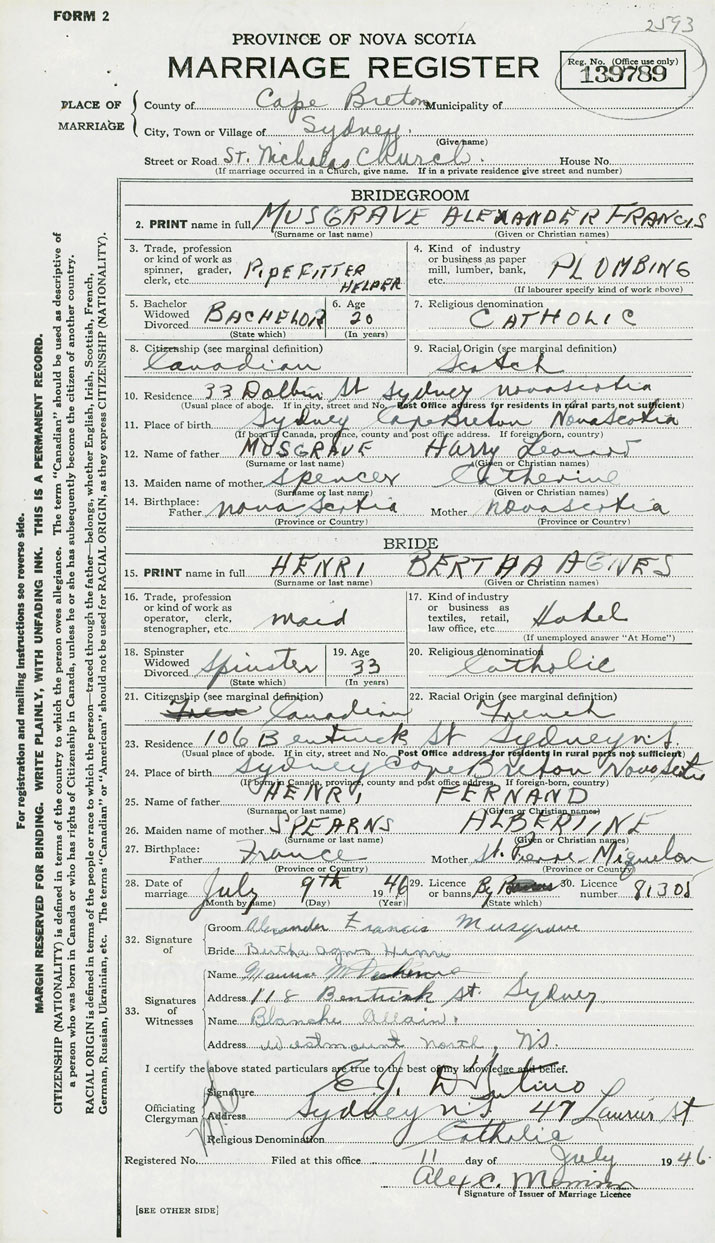 FORM 2
2593
PROVINCE OF NOVA SCOTIA
MARRIAGE REGISTER
Reg. No. (Office use only)
139789
PLACE OF MARRIAGE
County of Cape Breton Municipality of
City, Town or Village of Sydney.
(Give name)
Street or Road St. Nicholas Church. House No.
(If marriage occurred in a Church, give name. If in a private residence give street and number)
BRIDEGROOM
2. PRINT name in full MUSGRAVE ALEXANDER FRANCIS
(Surname or last name) (Given or Christian names)
3. Trade, profession or kind of work as spinner, grader, clerk, etc. PIPEFITTER HELPER
4. Kind of industry or business as paper mill, lumber, bank, etc. PLOMBING
(If labourer specify kind of work above)
5. Bachelor Widowed Divorced BACHELOR (State which)
6. Age 20 (In years)
7. Religious denomination CATHOLIC
8. Citizenship (see marginal definition) Canadian
9. Racial Origin (see marginal definition) Scotch
10. Residence 33 Dolbin St Sydney Nova Scotia
(Usual place of abode. If in city, street and No. Post Office address for residents in rural parts not sufficient)
11. Place of birth Sydney Cape Breton Nova Scotia
(If born in Canada, province, county and post office address. If foreign-born, country)
12. Name of father MUSGRAVE Harry Leonard
(Surname or last name) (Given or Christian names)
13. Maiden name of mother Spencer Catherine
(Surname or last name) (Given or Christian names)
14. Birthplace: Father Nova Scotia Mother Nova Scotia
(Province or Country) (Province or Country)
BRIDE
15. PRINT name in full HENRI BERTHA AGNES
(Surname or last name) (Given or Christian names)
16. Trade, profession or kind of work as operator, clerk, stenographer, etc. maid
17. Kind of industry or business as textiles, retail, law office, etc. Hotel
(If unemployed answer "At Home")
18. Spinster Widowed Divorced Spinster (State which)
19. Age 33 (In years)
20. Religious denomination Catholic
21. Citizenship (see marginal definition) Canadian
22. Racial Origin (see marginal definition) French
23. Residence 106 Bentinck St Sydney N.S
(Usual place of abode. If in city, street and No. Post Office address for residents in rural parts not sufficient)
24. Place of birth Sydney Cape Breton Nova Scotia
(If born in Canada, province, county and post office address. If foreign-born, country)
25. Name of father HENRI, FERNAND
(Surname or last name) (Given or Christian names)
26. Maiden name of mother SPEARNS ALBERTINE
(Surname or last name) (Given or Christian names)
27. Birthplace: Father France Mother St. Pierre Miquelon
(Province or Country) (Province or Country)
28. Date of marriage July 9th 1946
(Month by name) (Day) (Year)
29. Licence or banns By (State which)
30. Licence number 81305
32. Signature of
Groom Alexander Francis Musgrave
Bride Bertha Agnes Henri
33. Signatures of Witnesses
Name Maurice
Address 118 Bentinck St. Sydney
Name Blanche Allain.
Address Westmount North, N.S.
I certify the above stated particulars are true to the best of my knowledge and belief.
Officiating Clergyman
Signature E. J.
Address Sydney N.S. 47 Laurier St
Religious Denomination Catholic
Registered No. Filed at this office 11 day of July 1946.
Alex C. Morrison
Signature of Issuer of Marriage Licence
[SEE OTHER SIDE]
For registration and mailing instructions see reverse side.
MARGIN RESERVED FOR BINDING. WRITE PLAINLY, WITH UNFADING INK. THIS IS A PERMANENT RECORD.
CITIZENSHIP (NATIONALITY) is defined in terms of the country to which the person owes allegiance. The term "Canadian" should be used as descriptive of
a person who was born in Canada or who has rights of Citizenship in Canada, unless he or she has subsequently become the citizen of another country.
RACIAL ORIGIN is defined in terms of the people or race to which the person—traced through the father—belongs, whether English, Irish, Scottish, French,
German, Russian, Ukrainian, etc. The terms "Canadian" or "American" should not be used for RACIAL ORIGIN, as they express CITIZENSHIP (NATIONALITY).